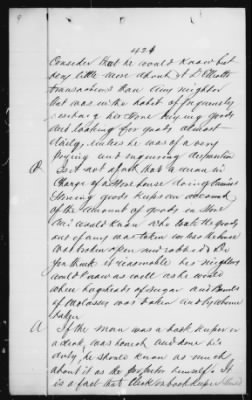 424
Consider that he would know but
very little more about A L Elliotts
transactions than any neighbor
that was in the habit of frequently
visiting his Store buying goods
and looking for goods almost
daily, unless he was of a very
prying and enquiring disposition
Q. Is it not a fact that a man in
Charge of a Store house doing business
Storing goods keeps an account
of the amount of goods in Store
and would know who took the goods
out if any was taken unless the house
was broken open and robbed & Do
you think it reasonable his neighbors
would know as well as he would
when hogsheads of Sugar and Barrels
of Molasses was taken and by whom
taken
A If the man was a book keeper or
a clerk, was honest, and done his
duty, he should know as much
about it as the proprietor himself. It
is a fact that Clerk or book keeper